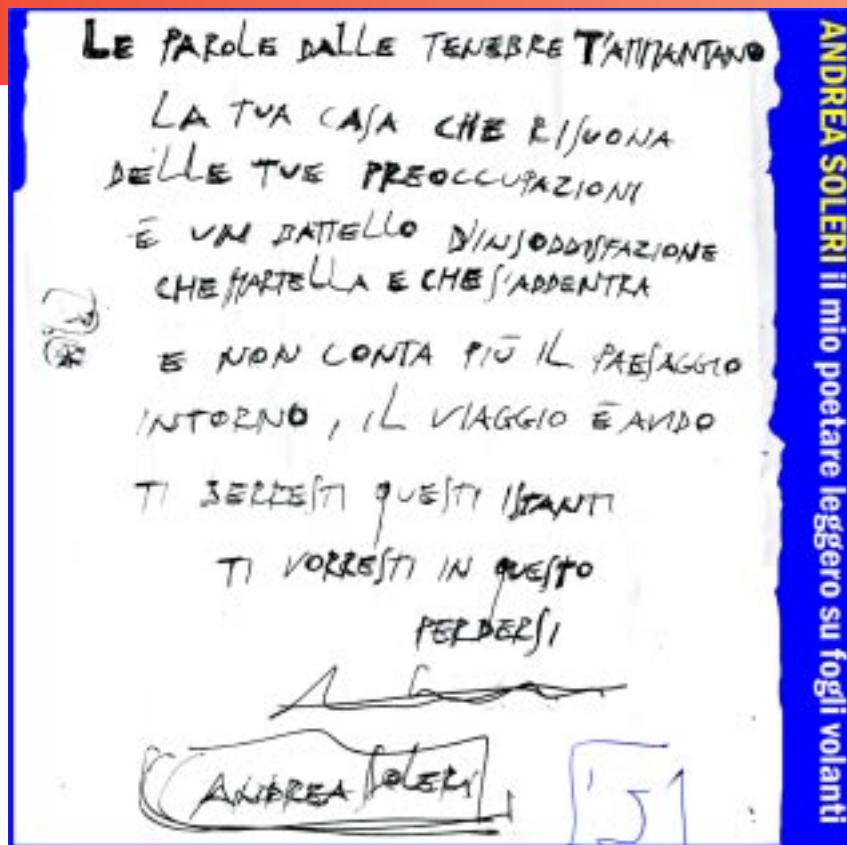 LE PAROLE DALLE TENEBRE T'AMMANTANO
LA TUA CASA CHE RISUONA
DELLE TUE PREOCCUPAZIONI
È UN BATTELLO D'INSODDISFAZIONE
CHE MARTELLA E CHE S'ADDENTRA
E NON CONTA PIÙ IL PAESAGGIO
INTORNO, IL VIAGGIO È AVIDO
TI BERRESTI QUESTI ISTANTI
TI VORRESTI IN QUESTO
PERDERSI
ANDREA SOLERI
ANDREA SOLERI il mio poetare leggero su fogli volanti